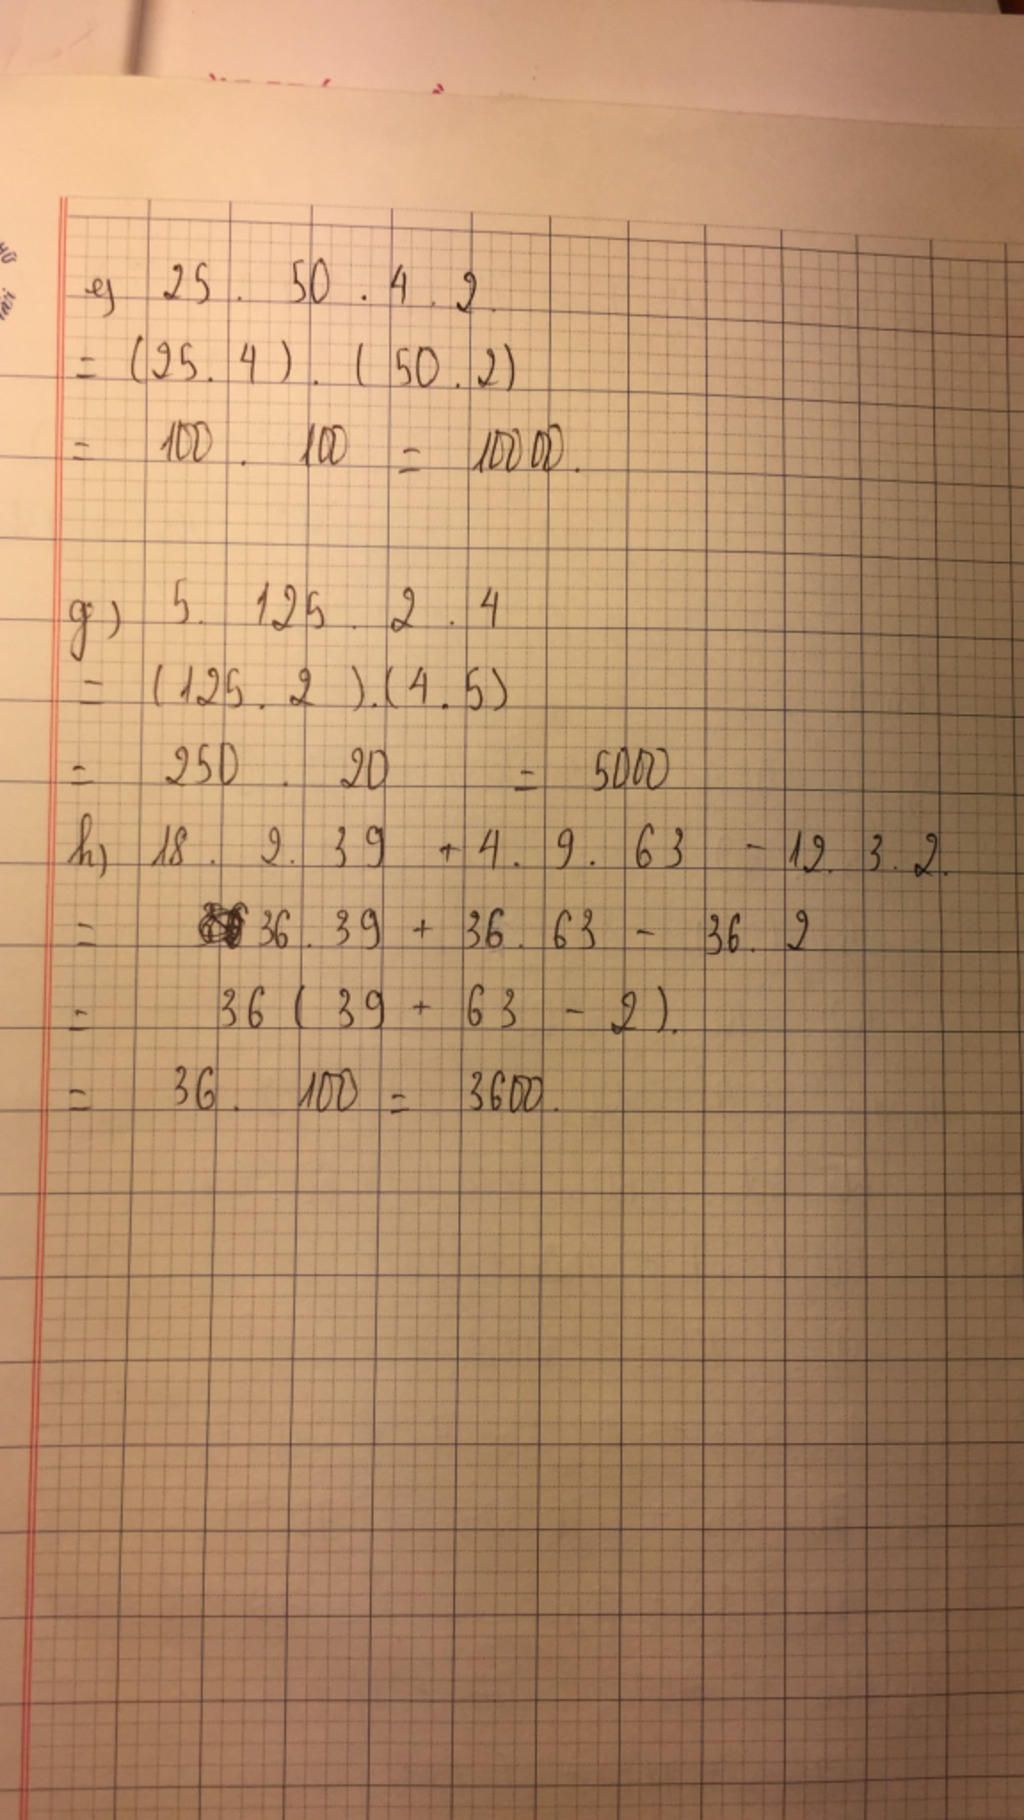 e) 25 . 50 . 4 . 2.
= (25 . 4) . (50 . 2)
= 100 . 100 = 10000.
g) 5. 125 . 2 . 4
= (125 . 2).(4 . 5)
= 250 . 20 = 5000
h) 18 . 2. 39 + 4. 9. 63 - 12. 3. 2.
= 36 . 39 + 36. 63 - 36. 2
= 36 ( 39 + 63 - 2).
= 36. 100 = 3600.